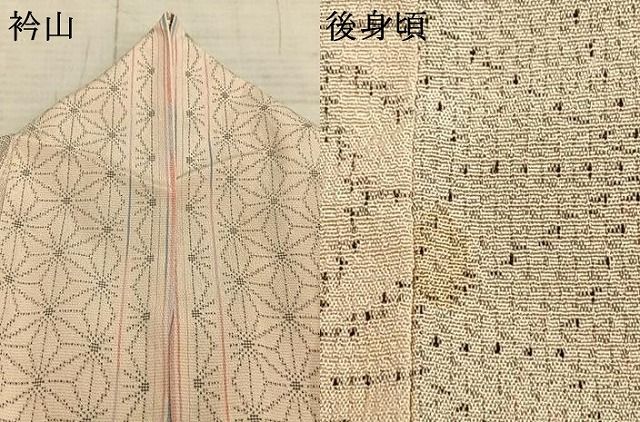 衿山
後身頃